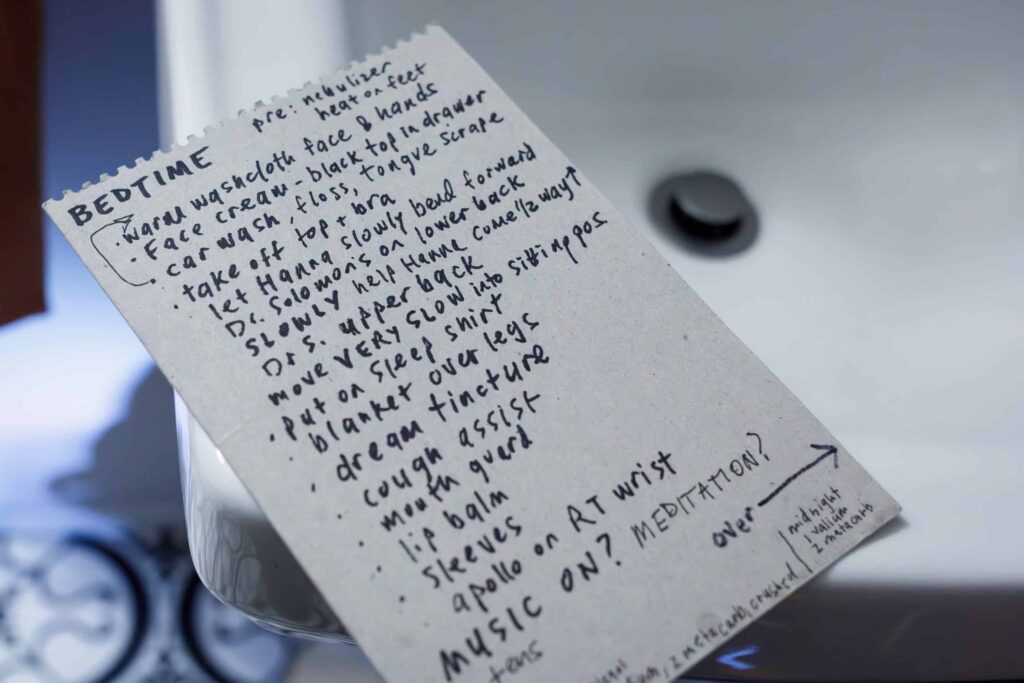 pre: nebulizer
heat on feet
BEDTIME
· warm washcloth face & hands
· Face cream - black top in drawer
car wash, floss, tongue scrape
· take off top + bra
let Hanna slowly bend forward
Dr. Solomons on lower back
SLOWLY help Hanna come 1/2 way ↑
Dr S. upper back
move VERY slow into sitting pos
· put on sleep shirt
· blanket over legs
· dream tincture
cough assist
· mouth guard
· lip balm
· sleeves
apollo on RT wrist
MUSIC ON? MEDITATION?
over →
tens
2 metacarb, crushed
midnight
1 valium
2 metacarb